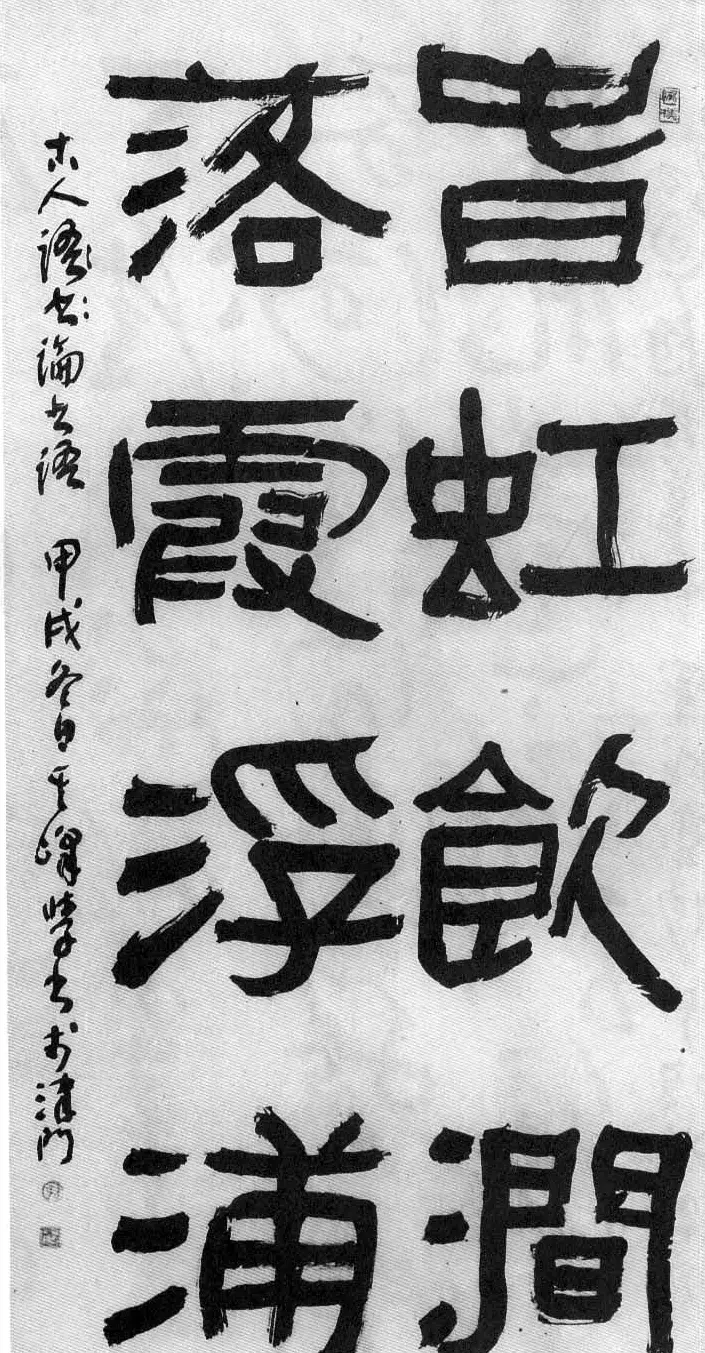 旹虹飲澗
落霞浮浦
古人語書論書語 甲戌冬日 書於津門